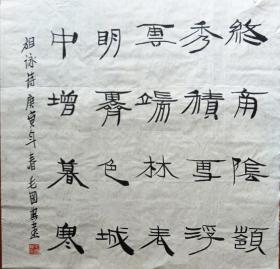 終南陰嶺
秀積雪浮
雲端林表
明霽色城
中增暮寒
祖詠詩庚寅年春毛國典書